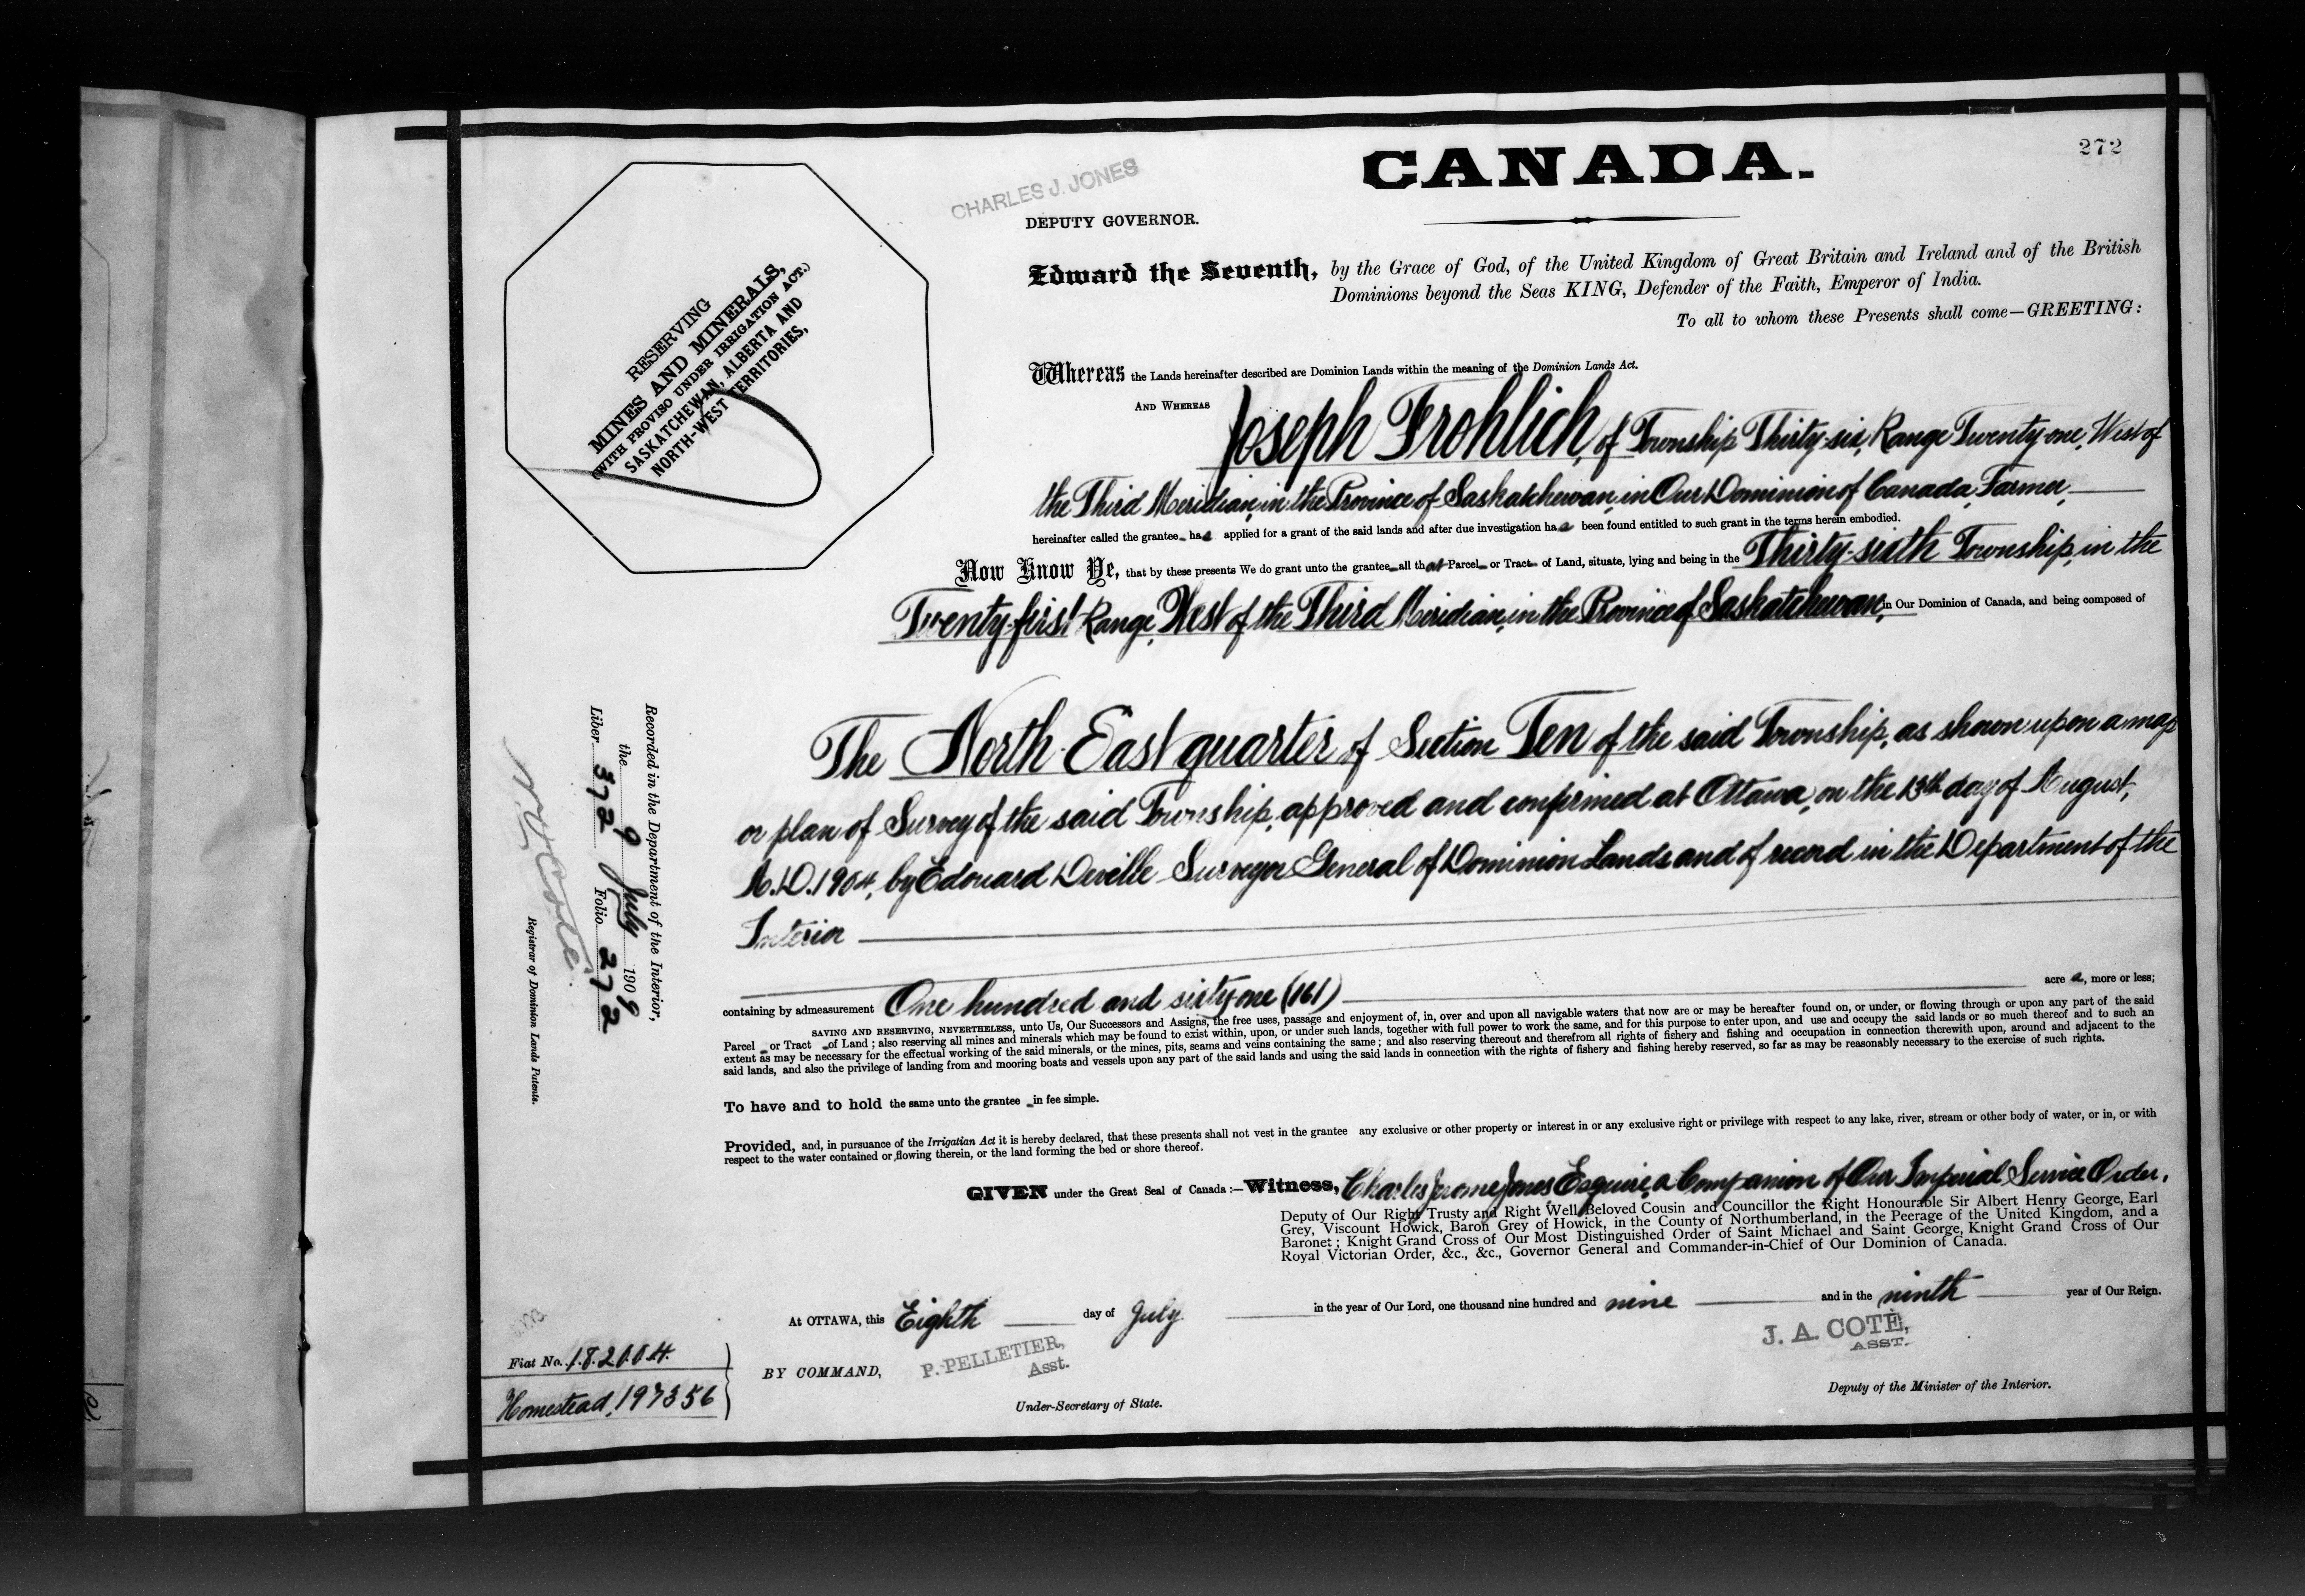 272
CHARLES J. JONES
CANADA.
DEPUTY GOVERNOR.
Edward the Seventh, by the Grace of God, of the United Kingdom of Great Britain and Ireland and of the British
Dominions beyond the Seas KING, Defender of the Faith, Emperor of India.
To all to whom these Presents shall come—GREETING:
RESERVING
MINES AND MINERALS,
(WITH PROVISO UNDER IRRIGATION ACT.)
SASKATCHEWAN, ALBERTA AND
NORTH-WEST TERRITORIES,
Whereas the Lands hereinafter described are Dominion Lands within the meaning of the Dominion Lands Act.
AND WHEREAS Joseph Frohlich, of Township Thirty-six, Range Twenty-one, West of
the Third Meridian, in the Province of Saskatchewan, in Our Dominion of Canada, Farmer,
hereinafter called the grantee has applied for a grant of the said lands and after due investigation has been found entitled to such grant in the terms herein embodied.
Now Know Ye, that by these presents We do grant unto the grantee all that Parcel or Tract of Land, situate, lying and being in the Thirty-sixth Township, in the
Twenty-first Range, West of the Third Meridian, in the Province of Saskatchewan, in Our Dominion of Canada, and being composed of
The North East quarter of Section Ten of the said Township, as shown upon a map
or plan of Survey of the said Township, approved and confirmed at Ottawa, on the 13th day of August,
A.D. 1904, by Edouard Deville Surveyor General of Dominion Lands and of record in the Department of the
Interior
containing by admeasurement One hundred and sixty-one (161) acres, more or less;
SAVING AND RESERVING, NEVERTHELESS, unto Us, Our Successors and Assigns, the free uses, passage and enjoyment of, in, over and upon all navigable waters that now are or may be hereafter found on, or under, or flowing through or upon any part of the said
Parcel or Tract of Land; also reserving all mines and minerals which may be found to exist within, upon, or under such lands, together with full power to work the same, and for this purpose to enter upon, and use and occupy the said lands or so much thereof and to such an
extent as may be necessary for the effectual working of the said minerals, or the mines, pits, seams and veins containing the same; and also reserving thereout and therefrom all rights of fishery and fishing and occupation in connection therewith upon, around and adjacent to the
said lands, and also the privilege of landing from and mooring boats and vessels upon any part of the said lands and using the said lands in connection with the rights of fishery and fishing hereby reserved, so far as may be reasonably necessary to the exercise of such rights.
To have and to hold the same unto the grantee in fee simple.
Provided, and, in pursuance of the Irrigation Act it is hereby declared, that these presents shall not vest in the grantee any exclusive or other property or interest in or any exclusive right or privilege with respect to any lake, river, stream or other body of water, or in, or with
respect to the water contained or flowing therein, or the land forming the bed or shore thereof.
GIVEN under the Great Seal of Canada:—Witness, Charles Jerome Jones Esquire, a Companion of Our Imperial Service Order,
Deputy of Our Right Trusty and Right Well-Beloved Cousin and Councillor the Right Honourable Sir Albert Henry George, Earl
Grey, Viscount Howick, Baron Grey of Howick, in the County of Northumberland, in the Peerage of the United Kingdom, and a
Baronet; Knight Grand Cross of Our Most Distinguished Order of Saint Michael and Saint George, Knight Grand Cross of Our
Royal Victorian Order, &c., &c., Governor General and Commander-in-Chief of Our Dominion of Canada.
At OTTAWA, this Eighth day of July in the year of Our Lord, one thousand nine hundred and nine and in the ninth year of Our Reign.
BY COMMAND,
P. PELLETIER,
Asst.
Under-Secretary of State.
J. A. COTÈ,
ASST.
Deputy of the Minister of the Interior.
Recorded in the Department of the Interior,
the 9 July 1909
Liber 372 Folio 272
Registrar of Dominion Lands Patents.
Fiat No. 182004.
Homestead, 197356